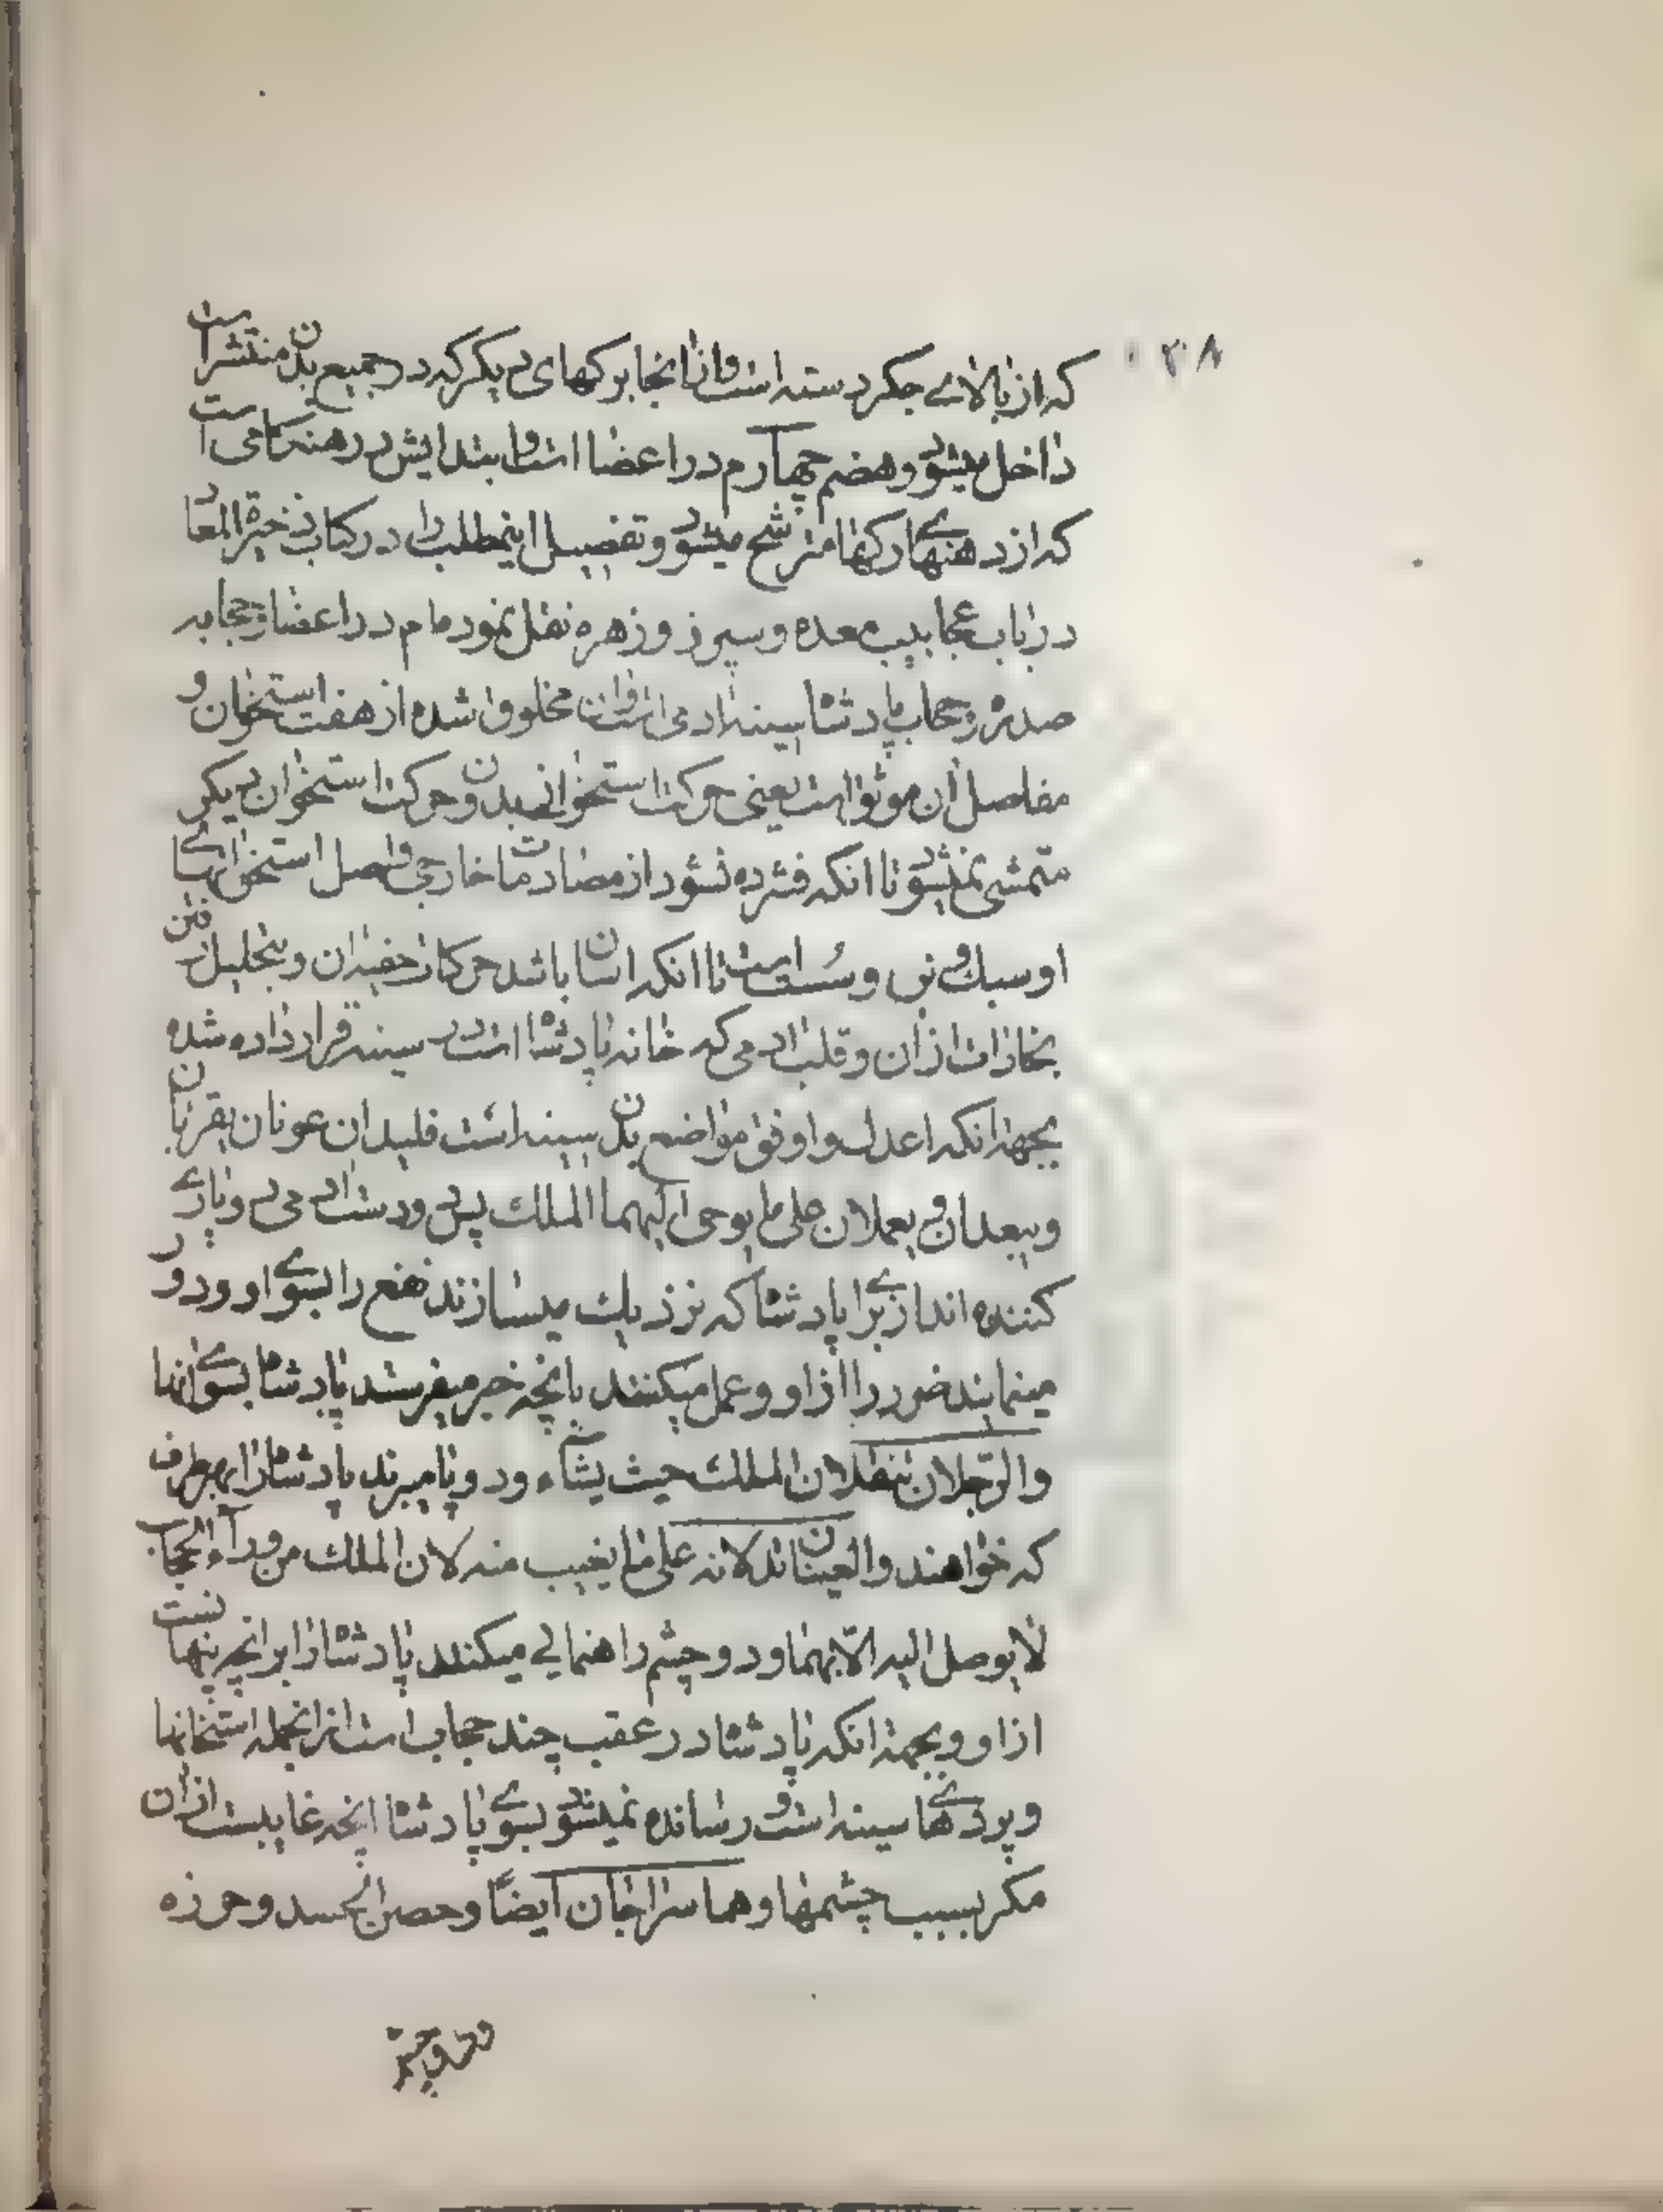 ۳۸
که از بالای جگر رسته است و از آنجا برگهای دیگر که در جمیع بدن منتشر است
داخل میشود و هضم چهارم در اعضا است و ابتدایش در هنگامی است
که از دهنهای رگها مترشح میشود و تفصیل اینمطلب را در کتاب ذخیرة المعاد
در باب عجایب معده و سپرز و زهره نقل نموده‌ام در اعضا و حجابه
صدره و حجاب پادشاه سینه ادمی است و ان مخلوق شده از هفت استخوان و
مفاصل ان موثق است یعنی حرکت استخوانی بدون حرکت استخوان دیگر
متمشی نمیشود تا انکه فشرده نشود از مصادمات خارجی و اصل استخوانهای
او سبک و نی و سست است تا انکه اسان باشد حرکات خفیه ان و بتحلیل رفتن
بخارات از ان و قلب ادمی که خانه پادشاه است در سینه قرار داده شده
بجهة انکه اعدل و اوفق مواضع بدن سینه است فلیدان عونان یقربان
و یبعدان و یعملان علی ما یوحی الیهما الملک پس دو دست ادمی دو یاری
کننده اند از برای پادشاه که نزدیک میسازند نفع را بسوی او و دور
مینمایند ضرر را از او و عمل میکنند بانچه خبر میفرستد پادشاه بسوی انها
والرجلان تنقلان الملک حیث یشاء و دو پا میبرند پادشاه را بهر طرف
که خواهند والعینان تدلانه علی ما یغیب منه لان الملک من وراء الحجاب
لا یوصل الیه الا بهما و دو چشم راهنمایی میکنند پادشاه را بر انچه پنهانست
از او و بجهة انکه پادشاه در عقب چند حجاب است از انجمله استخوانها
و پرده‌های سینه است و رسانده نمیشود بسوی پادشاه انچه غایبست از ان
مکر بسبب چشمها و هما سراجان ایضًا و حصن الجسد و حرزه